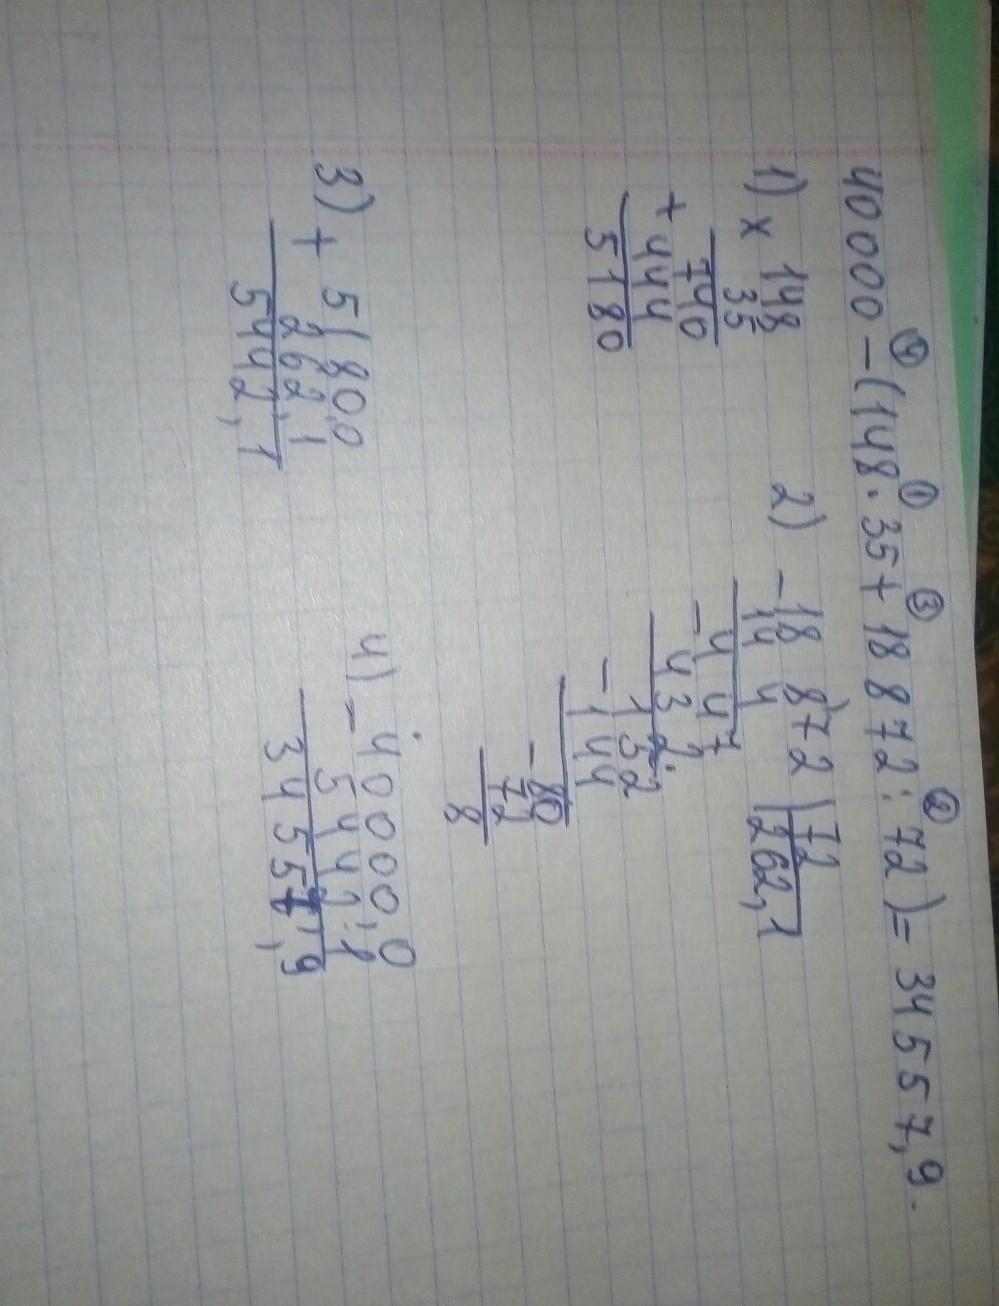 ④ ① ③ ②
40000-(148·35+18872:72)=34557,9.
1) × 148
35
740
+ 444
5180
2) - 18872 | 72
144 | 262,1
- 447
432
- 152
144
- 80
72
8
3) + 5180,0
262,1
5442,1
4) - 40000,0
5442,1
34557,9